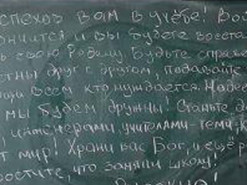 спехов вам в учёбе! Вс
нчится и вы будете восста
свою Родину. Будьте справе
тны друг с другом, подавайте
щи всем кто нуждается. Наде
мы будем дружны! Станьте
инженерами, учителями - кем
т мир! Храни вас Бог, и ещё р
остите, что заняли школу!